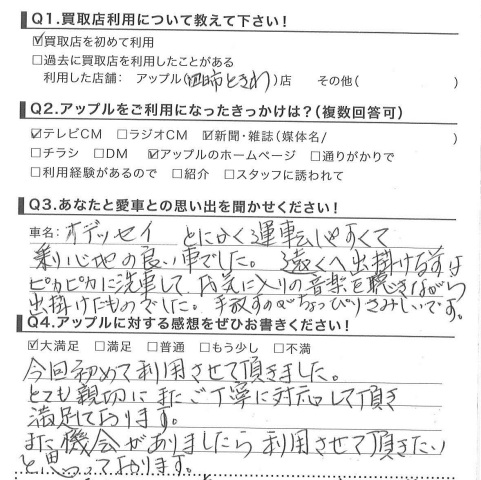 Q1.買取店利用について教えて下さい!
☑買取店を初めて利用
□過去に買取店を利用したことがある
利用した店舗: アップル(四日市ときわ)店 その他( )
Q2.アップルをご利用になったきっかけは?(複数回答可)
☑テレビCM □ラジオCM ☑新聞・雑誌(媒体名/ )
□チラシ □DM ☑アップルのホームページ □通りがかりで
□利用経験があるので □紹介 □スタッフに誘われて
Q3.あなたと愛車との思い出を聞かせください!
車名: オデッセイ とにかく運転しやすくて
乗り心地の良い車でした。 遠くへ出掛ける前は
ピカピカに洗車して お気に入りの音楽を聴きながら
出掛けたものでした。手放すのがちょっぴりさみしいです。
Q4.アップルに対する感想をぜひお書きください!
☑大満足 □満足 □普通 □もう少し □不満
今回初めて利用させて頂きました。
とても親切に またご丁寧に対応して頂き
満足しております。
また機会がありましたら 利用させて頂きたい
と思っております。